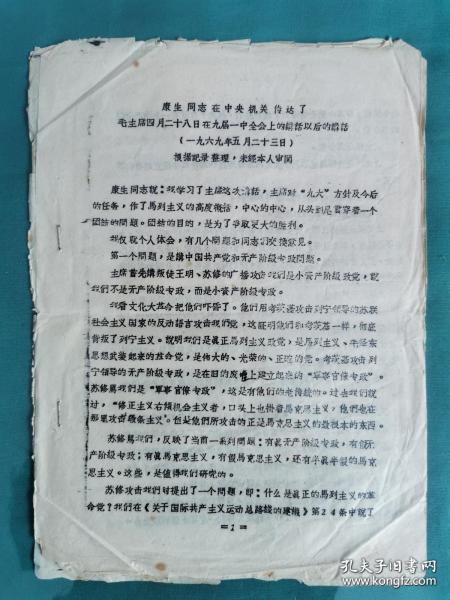 康生同志在中央机关传达了
毛主席四月二十八日在九届一中全会上的讲话以后的讲话
(一九六九年五月二十三日)
根据记录整理,未经本人审阅
康生同志说:我学习了主席这次讲话,主席对“九大”方针及今后
的任务,作了马列主义的高度概括,中心的中心,从头到尾贯穿着一个
团结的问题。团结的目的,是为了争取更大的胜利。
我仅就个人体会,有几个问题和同志们交换意见。
第一个问题,是讲中国共产党和无产阶级专政问题。
主席首先讲叛徒王明、苏修的广播攻击我们是小资产阶级政党,说
我们不是无产阶级专政,而是小资产阶级专政。
我看文化大革命把他们吓昏了。他们用考茨基攻击列宁领导的苏联
社会主义国家的反动语言攻击我们党,这证明他们和考茨基一样,彻底
背叛了列宁主义。说明我们是真正马列主义政党,是马列主义、毛泽东
思想武装起来的革命党,是伟大的、光荣的、正确的党。考茨基攻击列
宁领导的无产阶级专政,是在旧的废墟上建立起来的“军事官僚专政”。
苏修骂我们是“軍事官僚专政”,这是有他们的老传统的。过去我们说
过,“修正主义右倾机会主义者,口头上也挂着马克思主义,他們也在
那里攻击教条主义”。但是他们所攻击的正是马克思主义的最根本的东西。
苏修骂我们,反映了当前一系列问题:有真无产阶级专政,有假无
产阶级专政;有真马克思主义,有假马克思主义,还有半真半假的马克
思主义。这些,是值得我们研究的。
苏修攻击我们对提出了一个问题,即:什么是真正的马列主义的革
命党?我们在《关于国际共产主义运动总路线的建议》第24条中说了
=1=
孔夫子旧书网
www.kongfz.com